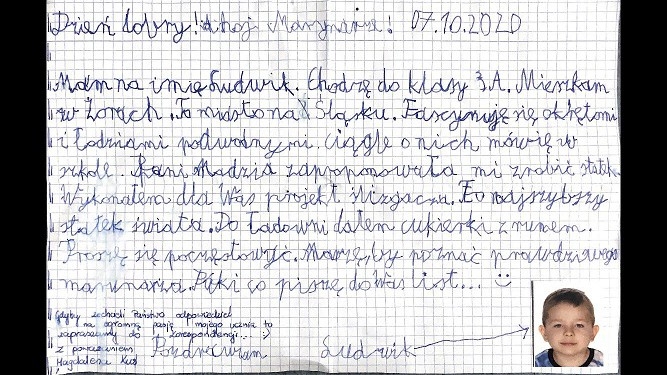 Dzień dobry! Ahoj Marynarze! 07.10.2020
Mam na imię Ludwik. Chodzę do klasy 3A. Mieszkam
w Żorach. To miasto na Śląsku. Fascynuję się okrętami
i łodziami podwodnymi. ciągle o nich mówię w
szkole. Pani Madzia zaproponowała mi zrobić statek.
Wykonałem dla Was projekt ślizgacza. To najszybszy
statek świata. Do ładowni dałem cukierki z rumem.
Proszę się poczęstować. Marzę, by poznać prawdziwego
marynarza. Póki co piszę do Was list...
Gdyby zechcieli Państwo odpowiedzieć
na ogromną pasję mojego ucznia to
zapraszamy do korespondencji... :)
z poważaniem
Magdalena
Pozdrawiam Ludwik